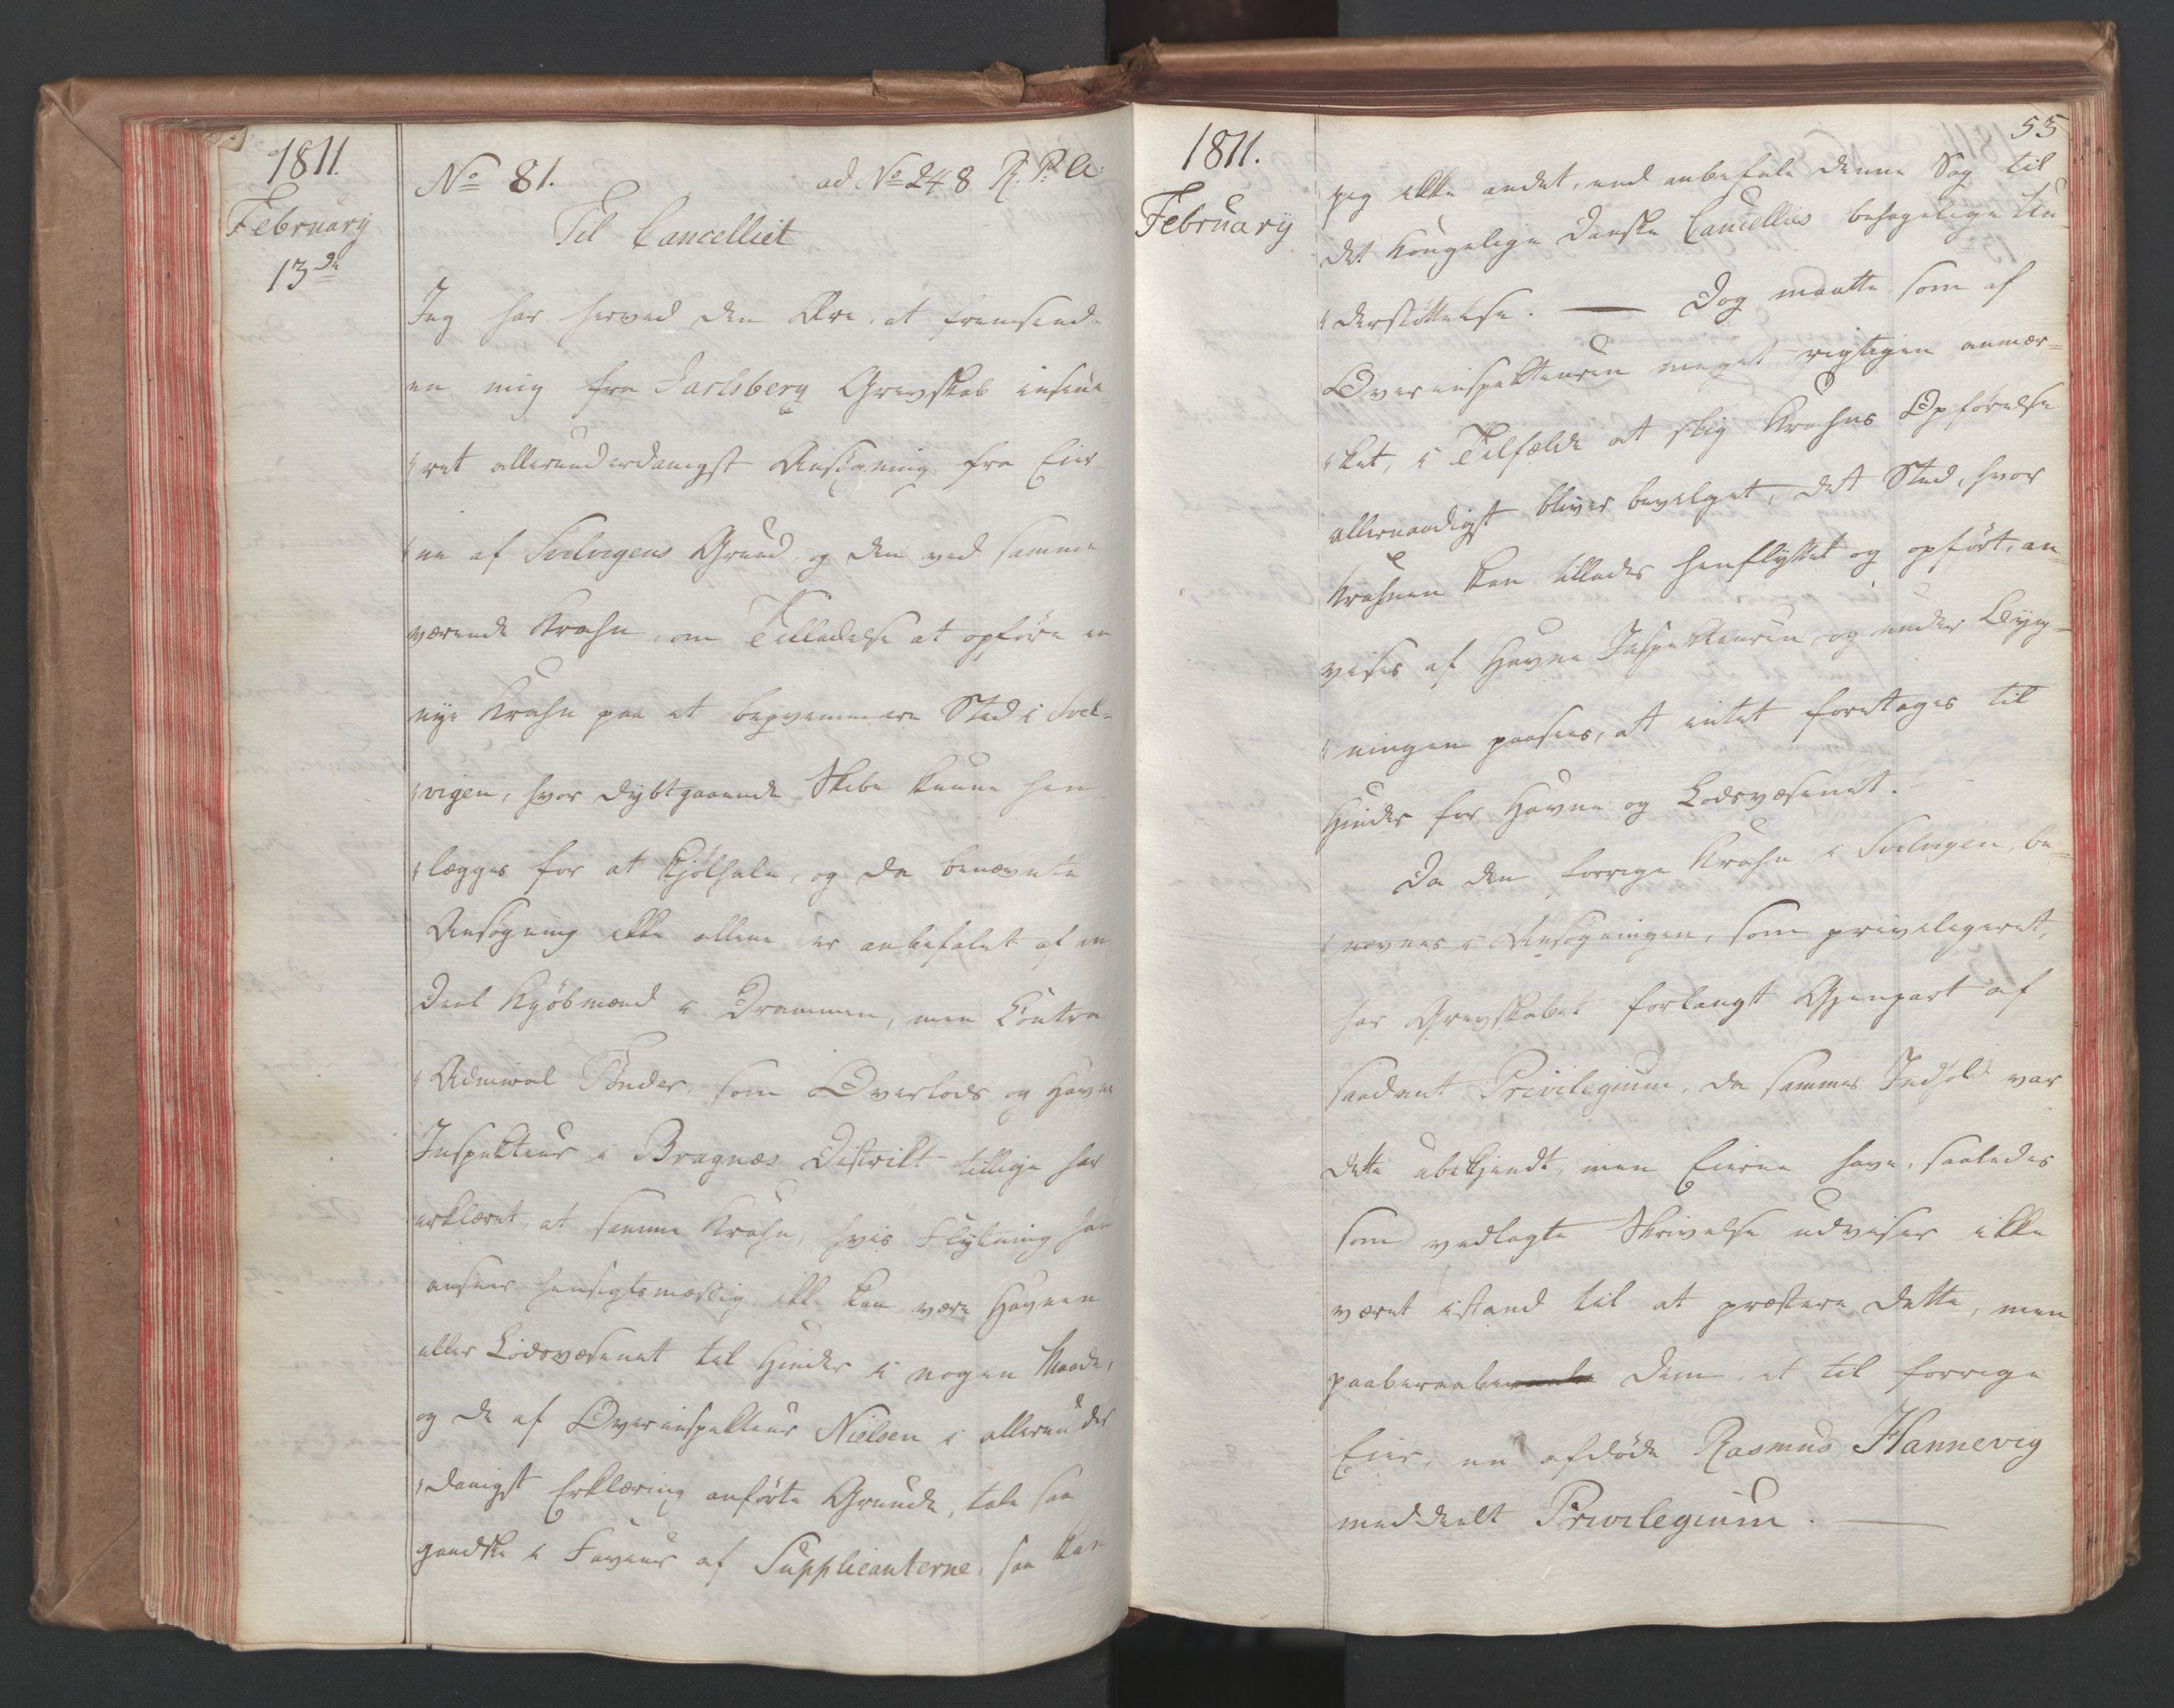 1811.
February
13de
No 81. ad No 248 R. P. A:
Til Cancelliet
Jeg har herved den Ære, at fremsende
en mig fra Jarlsberg Grevskab insinue-
"ret allerunderdanigst Ansøgning fra Eier-
"ne af Svelvigens Grund og den ved samme
værende Krahn, om Tilladelse at opføre en
nye Krahn paa et beqvemmere Sted i Svel-
"vigen, hvor dybtgaaende Skibe kunne hen
"lægges for at kjølhale, og da benævnte
Ansøgning ikke allene er anbefalet af en
Deel Kjøbmænd i Drammen, men Contra
"Admiral Tønder som Overlods og Havne
Inspekteur i Bragnæs District tillige har
erklæret, at samme Krahn, hvis Flytning han
ansees hensigtsmæssig ikke kan være Havnen
eller Lodsvæsenet til Hinder i nogen Maade,
og de af Overinspekteur Nielsen i allerunder
"danigst Erklæring anførte Grunde, tale saa
gandske i Faveur af Supplicanterne, saa kan
1811.
February
55
jeg ikke andet, end anbefale denne Sag til
det Kongelige Danske Cancellies behagelige Un
"derstøttelse. — Dog maatte som af
Overinspekteuren meget rigtigen anmær-
"ket, i Tilfælde at slig Krahns Opførelse
allernaadigst bliver bevilget, det Sted, hvor
Krahnen kan tillades henflyttet og opført, an-
vises af Havne Inspekteuren, og under Byg-
"ningen paasees, at intet foretages til
Hinder for Havne og Lodsvæsenet.
Da den forrige Krahn i Svelvigen, be-
"nævnes i Ansøgningen, som privilegeret,
har Grevskabet forlangt Gjenpart af
saadant Privilegium, da sammes Indhold var
dette ubekjendt, men Eierne have, saaledes
som vedlagte Skrivelse udviser ikke
været istand til at præstere dette, men
paaberaabe dem et til forrige
Eier, nu afdøde Rasmus Hannevig
meddeelt Privilegium. —